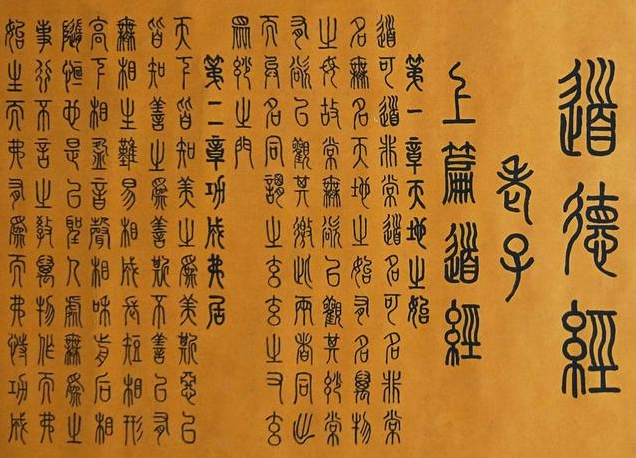 道德經
老子
上篇道經
第一章天地之始
道可道非常道名可名非常
名無名天地之始有名萬物
之母故常無欲以觀其妙常
有欲以觀其徼此兩者同出
而異名同謂之玄玄之又玄
眾妙之門
第二章功成弗居
天下皆知美之為美斯惡已
皆知善之為善斯不善已有
無相生難易相成長短相形
高下相盈音聲相和前后相
隨恆也是以聖人處無為之
事行不言之教萬物作而弗
始生而弗有為而弗恃功成